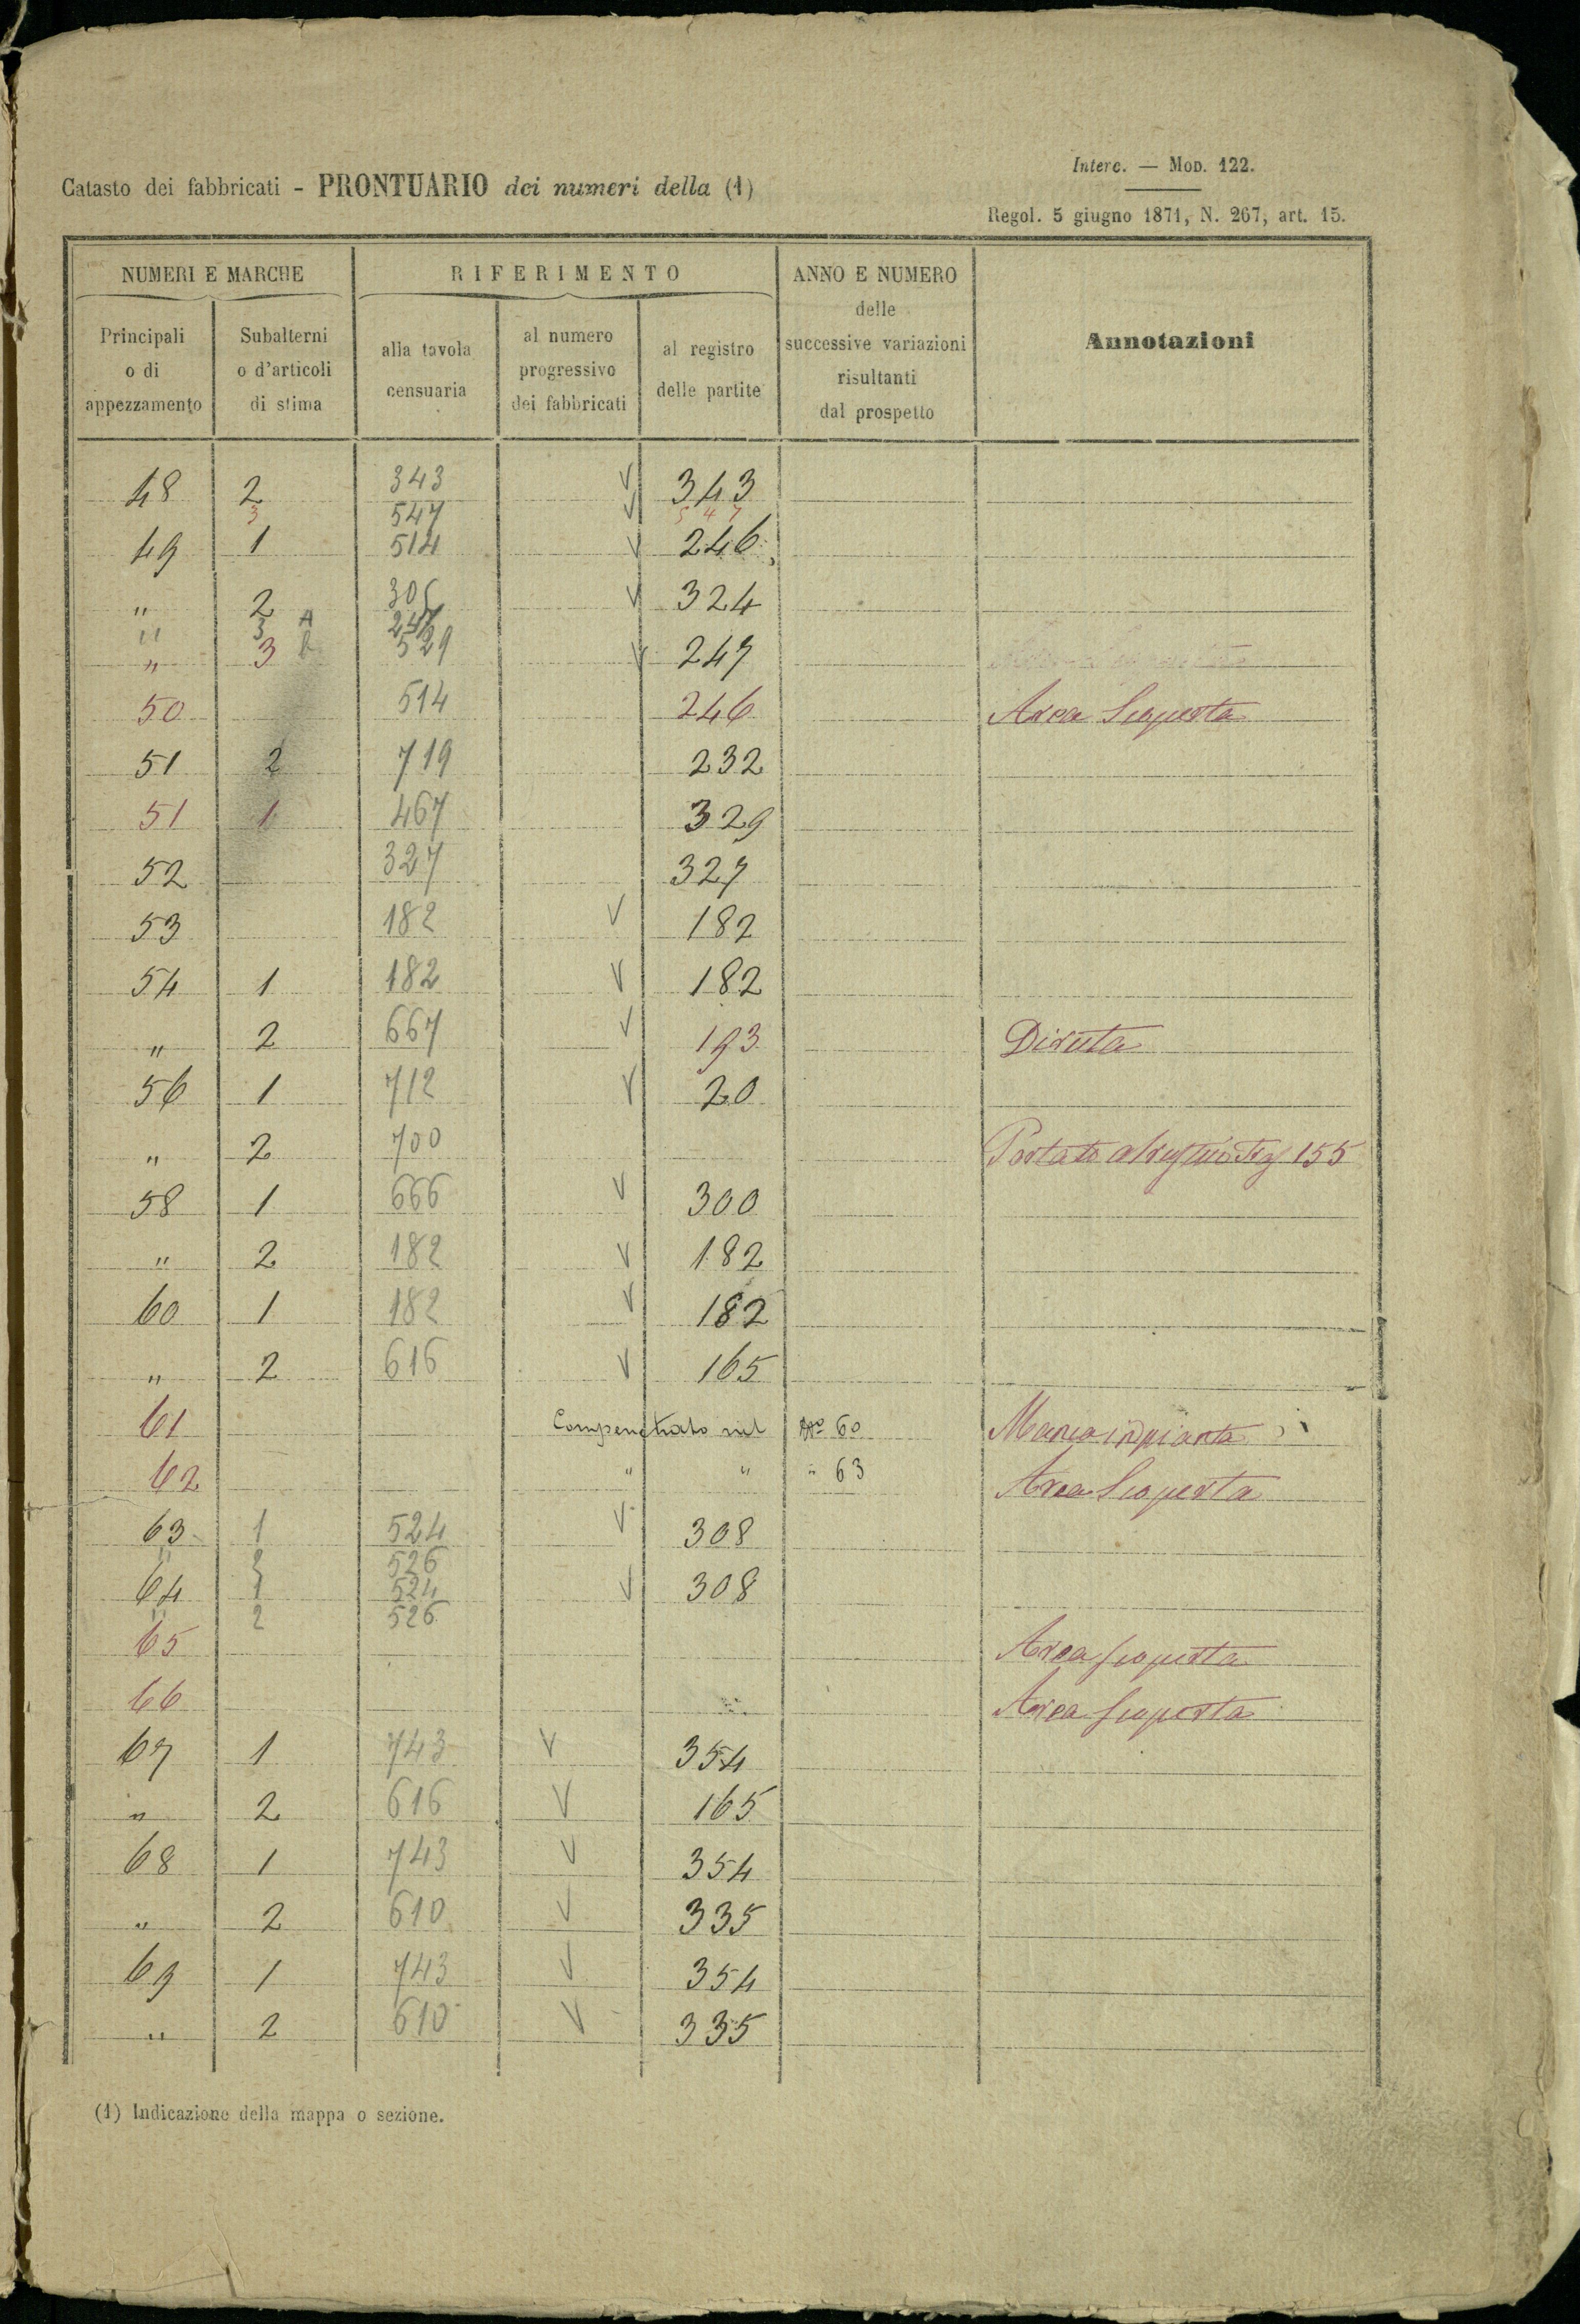 Interc. — Mod. 122.
Catasto dei fabbricati - PRONTUARIO dei numeri della (1)
Regol. 5 giugno 1871, N. 267, art. 15.
NUMERI E MARCHE RIFERIMENTO ANNO E NUMERO delle successive variazioni risultanti dal prospetto Annotazioni
Principali o di appezzamento Subalterni o d'articoli di stima alla tavola censuaria al numero progressivo dei fabbricati al registro delle partite
48 2 343 V 343
3 547 V 547
49 1 514 V 246
" 2 305 V 324
" 3 A 247
" 3 b 529 V 247
50 514 246 Area Scoperta
51 2 719 232
51 1 467 329
52 327 327
53 182 V 182
54 1 182 V 182
" 2 667 V 193 Diruta
56 1 712 V 20
" 2 700 Portato al 155
58 1 666 V 300
" 2 182 V 182
60 1 182 V 182
" 2 616 V 165
61 Compenetrato nel No 60 Manca in pianta
62 " " " 63 Area Scoperta
63 1 524 V 308
" 2 526
64 1 524 V 308
" 2 526
65 Area Scoperta
66 Area Scoperta
67 1 743 V 354
" 2 616 V 165
68 1 743 V 354
" 2 610 V 335
69 1 743 V 354
" 2 610 V 335
(1) Indicazione della mappa o sezione.